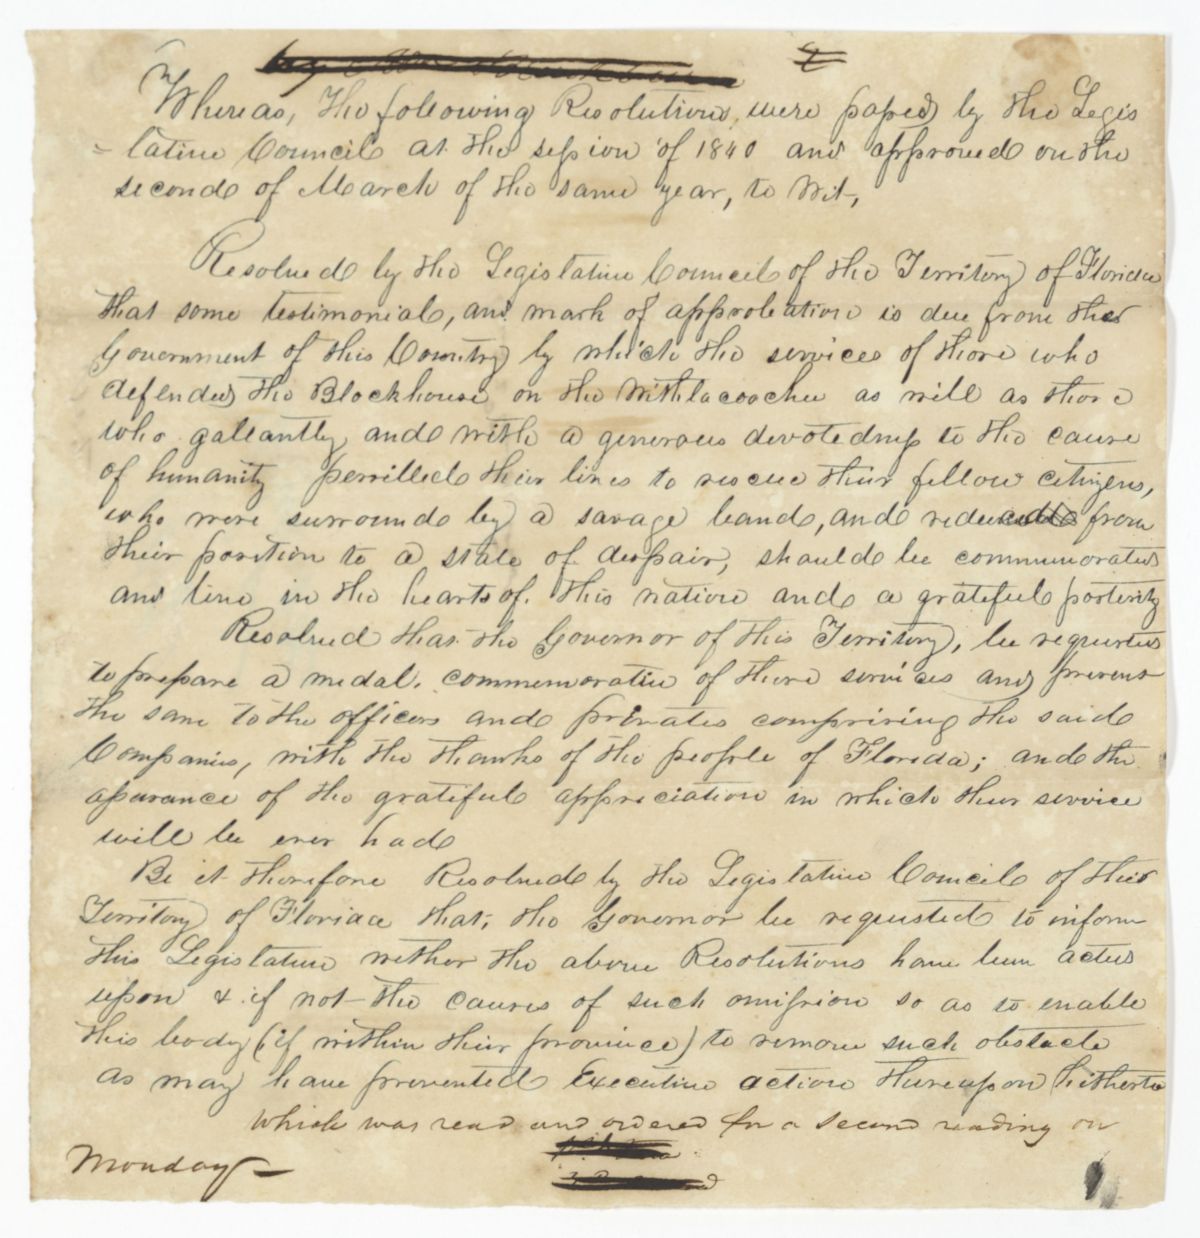 Whereas, The following Resolutions were passed by the Legis
= lative Council at the session of 1840 and approved on the
second of March of the same year, to Wit,
Resolved by the Legislative Council of the Territory of Florida
that some testimonial, and mark of approbation is due from the
Government of this Country by which the services of those who
defended the Blockhouse on the Withlacoochee as well as those
who gallantly and with a generous devotedness to the cause
of humanity perrilled their lives to rescue their fellow citizens,
who were surround by a savage band, and reduced from
their position to a state of despair, should be commemorated
and live in the hearts of this nation and a grateful posterity
Resolved that the Governor of this Territory, be requested
to prepare a medal, commemorative of those services and present
the same to the officers and privates comprising the said
Companies, with the thanks of the people of Florida; and the
asurance of the grateful appreciation in which their service
will be ever had
Be it therefore Resolved by the Legislative Council of the
Territory of Florida that, the Governor be requested to inform
this Legislature wether the above Resolutions have been acted
upon & if not the causes of such omission so as to enable
this body (if within their province) to remove such obstacle
as may have prevented Executive action thereupon hitherto
which was read and ordered for a second reading on
Monday